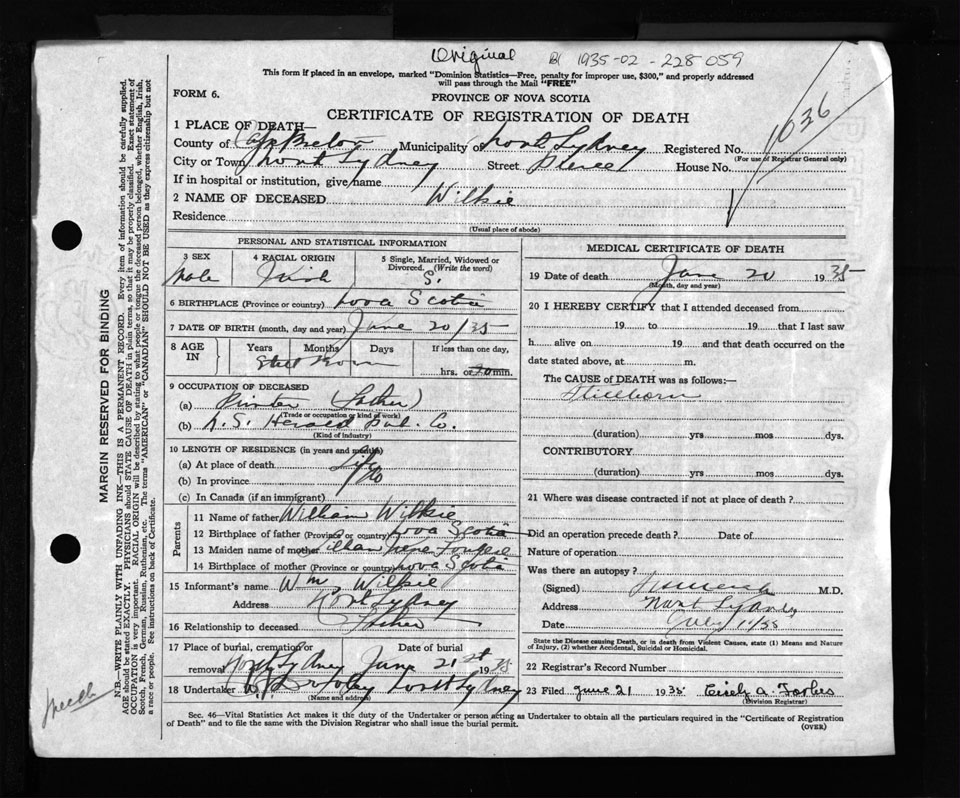 Original B 1935-02-228059
This form if placed in an envelope, marked "Dominion Statistics—Free, penalty for improper use, $300," and properly addressed
will pass through the Mail "FREE"
FORM 6.
PROVINCE OF NOVA SCOTIA
CERTIFICATE OF REGISTRATION OF DEATH
1036
1 PLACE OF DEATH—
County of Cape Breton Municipality of North Sydney Registered No.
(For use of Registrar General only)
City or Town North Sydney Street Pierce House No.
If in hospital or institution, give name
2 NAME OF DECEASED Wilkie
Residence
(Usual place of abode)
PERSONAL AND STATISTICAL INFORMATION
3 SEX 4 RACIAL ORIGIN 5 Single, Married, Widowed or
Divorced. (Write the word)
Male Irish S.
6 BIRTHPLACE (Province or country) Nova Scotia
7 DATE OF BIRTH (month, day and year) June 20/35
8 AGE IN Years Months Days If less than one day,
Still Born hrs. or min.
9 OCCUPATION OF DECEASED
(a) Printer (Father)
(Trade or occupation or kind of work)
(b) N.S. Herald Pub. Co.
(Kind of industry)
10 LENGTH OF RESIDENCE (in years and months)
(a) At place of death Life
(b) In province do
(c) In Canada (if an immigrant)
Parents
11 Name of father William Wilkie
12 Birthplace of father (Province or country) Nova Scotia
13 Maiden name of mother Lillian Irene
14 Birthplace of mother (Province or country) Nova Scotia
15 Informant's name Wm Wilkie
Address North Sydney
16 Relationship to deceased Father
17 Place of burial, cremation or Date of burial
removal North Sydney June 21st 1935
18 Undertaker North Sydney
(Name and address)
MEDICAL CERTIFICATE OF DEATH
19 Date of death June 20 1935
(Month, day and year)
20 I HEREBY CERTIFY that I attended deceased from
19 to 19 that I last saw
h alive on 19 and that death occurred on the
date stated above, at m.
The CAUSE of DEATH was as follows:—
Stillborn
(duration) yrs mos dys.
CONTRIBUTORY
(duration) yrs mos dys.
21 Where was disease contracted if not at place of death?
Did an operation precede death? Date of
Nature of operation
Was there an autopsy?
(Signed) M.D.
Address North Sydney
Date July 1/35
State the Disease causing Death, or in death from Violent Causes, state (1) Means and Nature
of Injury, (2) whether Accidental, Suicidal or Homicidal.
22 Registrar's Record Number
23 Filed June 21 1935 Cicely A. Forbes
(Division Registrar)
Sec. 46—Vital Statistics Act makes it the duty of the Undertaker or person acting as Undertaker to obtain all the particulars required in the "Certificate of Registration
of Death" and to file the same with the Division Registrar who shall issue the burial permit.
(OVER)
MARGIN RESERVED FOR BINDING
N.B.—WRITE PLAINLY WITH UNFADING INK—THIS IS A PERMANENT RECORD. Every item of information should be carefully supplied.
AGE should be stated EXACTLY. PHYSICIANS should STATE CAUSE OF DEATH in plain terms, so that it may be properly classified. Exact statement of
OCCUPATION is very important. RACIAL ORIGIN will be described by stating to what people or tongue the deceased person belonged, whether English, Irish,
Scotch, French, German, Russian, Ruthenian, etc. The terms "AMERICAN" or "CANADIAN" SHOULD NOT BE USED as they express citizenship but not
a race or people. See instructions on back of Certificate.